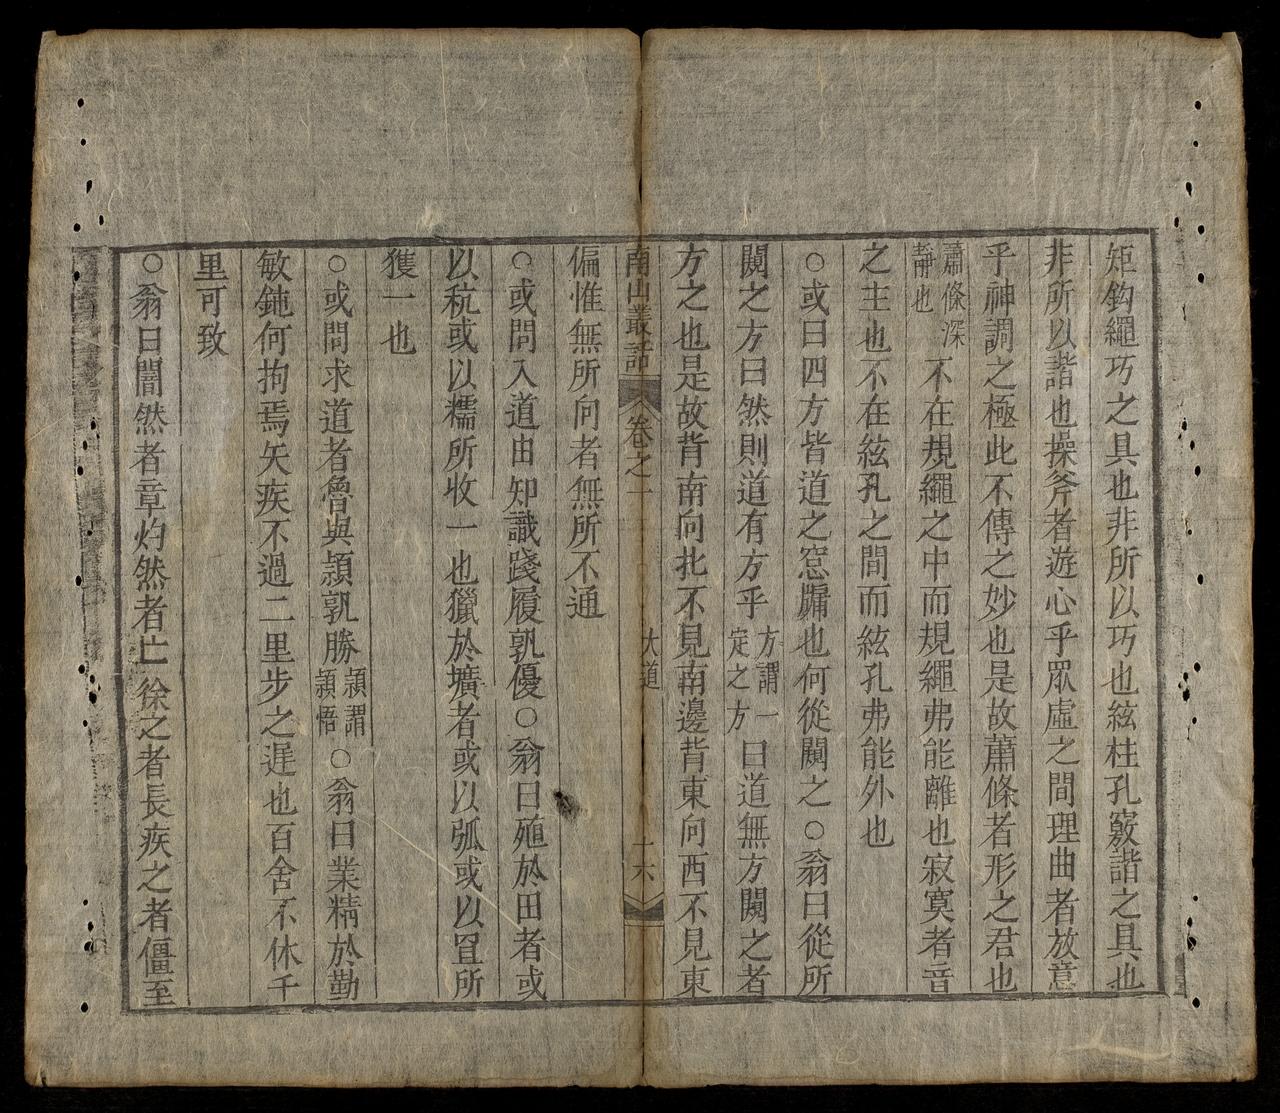 矩鈎繩巧之具也非所以巧也絃柱孔竅諧之具也
非所以諧也操斧者遊心乎眾虛之間理曲者放意
乎神調之極此不傳之妙也是故蕭條者形之君也
蕭條深
靜也
不在規繩之中而規繩弗能離也寂寞者音
之主也不在絃孔之間而絃孔弗能外也
○或曰四方皆道之窓牖也何從闚之○翁曰從所
闚之方曰然則道有方乎
方謂一
定之方
曰道無方闚之者
方之也是故背南向北不見南邊背東向西不見東
南山叢話
卷之一
大道
二六
偏惟無所向者無所不通
○或問入道由知識踐履孰優○翁曰殖於田者或
以秔或以糯所收一也獵於壙者或以弧或以罝所
獲一也
○或問求道者魯與頴孰勝
頴謂
頴悟
○翁曰業精於勤
敏鈍何拘焉矢疾不過二里步之遲也百舍不休千
里可致
○翁曰闇然者章灼然者亡徐之者長疾之者僵至